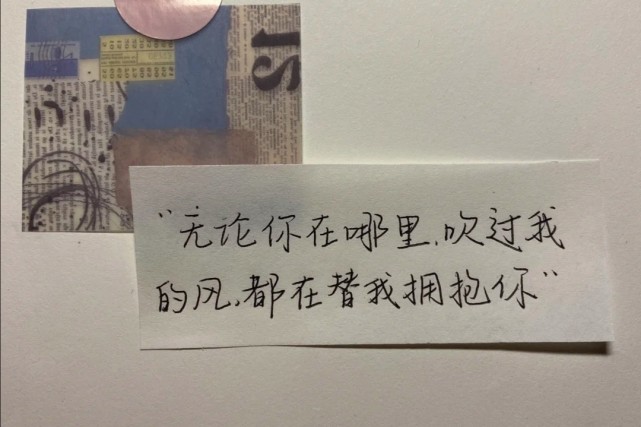 “无论你在哪里,吹过我
的风,都在替我拥抱你”